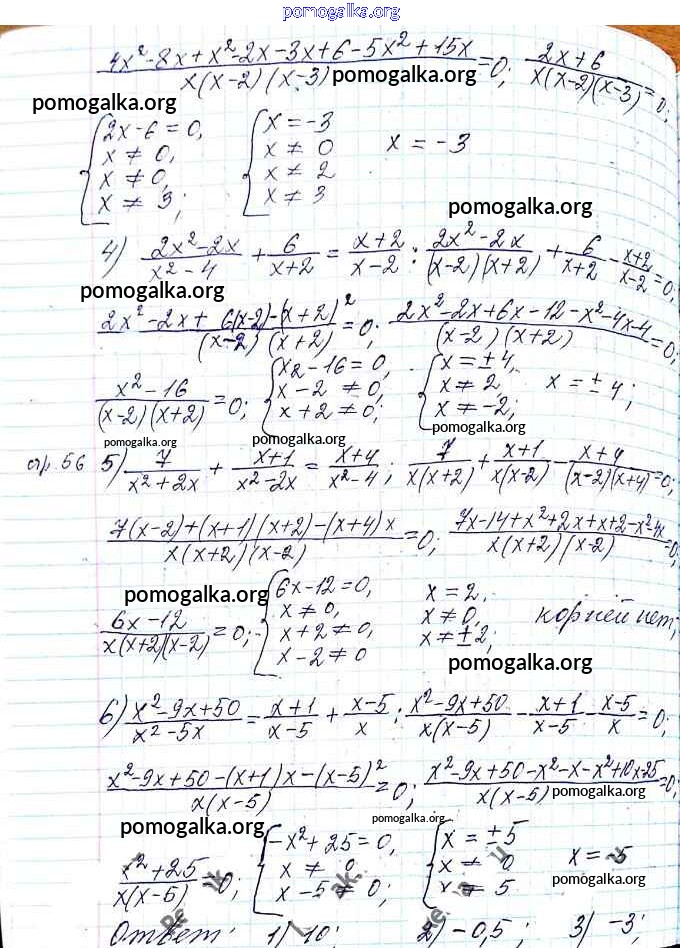 pomogalka.org
(4x² - 8x + x² - 2x - 3x + 6 - 5x² + 15x) / (x(x-2)(x-3)) = 0; (2x+6) / (x(x-2)(x-3)) = 0;
pomogalka.org
pomogalka.org
{ 2x - 6 = 0, x ≠ 0, x ≠ 0, x ≠ 3; { x = -3 x ≠ 0 x ≠ 2 x ≠ 3 x = -3
pomogalka.org
4) (2x² - 2x)/(x² - 4) + 6/(x+2) = (x+2)/(x-2); (2x² - 2x)/((x-2)(x+2)) + 6/(x+2) - (x+2)/(x-2) = 0;
pomogalka.org
(2x² - 2x + 6(x-2) - (x+2)²)/((x-2)(x+2)) = 0; (2x² - 2x + 6x - 12 - x² - 4x - 4)/((x-2)(x+2)) = 0;
(x² - 16)/((x-2)(x+2)) = 0; { x2 - 16 = 0, x - 2 ≠ 0, x + 2 ≠ 0; { x = ±4, x ≠ 2, x ≠ -2; x = ±4;
pomogalka.org
pomogalka.org
pomogalka.org
стр. 56 5) 7/(x² + 2x) + (x+1)/(x² - 2x) = (x+4)/(x² - 4); 7/(x(x+2)) + (x+1)/(x(x-2)) - (x+4)/((x-2)(x+4)) = 0;
(7(x-2) + (x+1)(x+2) - (x+4)x)/(x(x+2)(x-2)) = 0; (7x - 14 + x² + 2x + x + 2 - x² - 4x)/(x(x+2)(x-2)) = 0;
pomogalka.org
(6x - 12)/(x(x+2)(x-2)) = 0; { 6x - 12 = 0, x ≠ 0, x + 2 ≠ 0, x - 2 ≠ 0 x = 2, x ≠ 0, x ≠ ±2; корней нет;
pomogalka.org
6) (x² - 9x + 50)/(x² - 5x) = (x+1)/(x-5) + (x-5)/x; (x² - 9x + 50)/(x(x-5)) - (x+1)/(x-5) - (x-5)/x = 0;
(x² - 9x + 50 - (x+1)x - (x-5)²)/(x(x-5)) = 0; (x² - 9x + 50 - x² - x - x² + 10x - 25)/(x(x-5)) = 0;
pomogalka.org
pomogalka.org
pomogalka.org
(x² + 25)/(x(x-5)) = 0; { -x² + 25 = 0, x ≠ 0 x - 5 ≠ 0; { x = ±5 x ≠ 0 x ≠ 5 x = -5
pomogalka.org
Ответ: 1) 10; 2) -0,5; 3) -3;